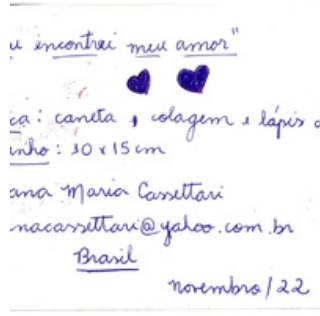 u encontrei meu amor"
ca: caneta, colagem e lápis d
nho: 10 x 15 cm
ana Maria Cassettari
nacassettari@yahoo.com.br
Brasil
novembro/22